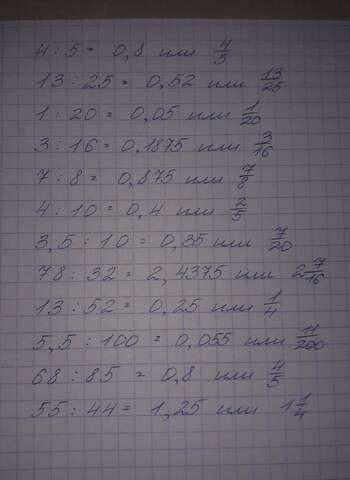 4 : 5 = 0,8 или 4/5
13 : 25 = 0,52 или 13/25
1 : 20 = 0,05 или 1/20
3 : 16 = 0,1875 или 3/16
7 : 8 = 0,875 или 7/8
4 : 10 = 0,4 или 2/5
3,5 : 10 = 0,35 или 7/20
78 : 32 = 2,4375 или 2 7/16
13 : 52 = 0,25 или 1/4
5,5 : 100 = 0,055 или 11/200
68 : 85 = 0,8 или 4/5
55 : 44 = 1,25 или 1 1/4